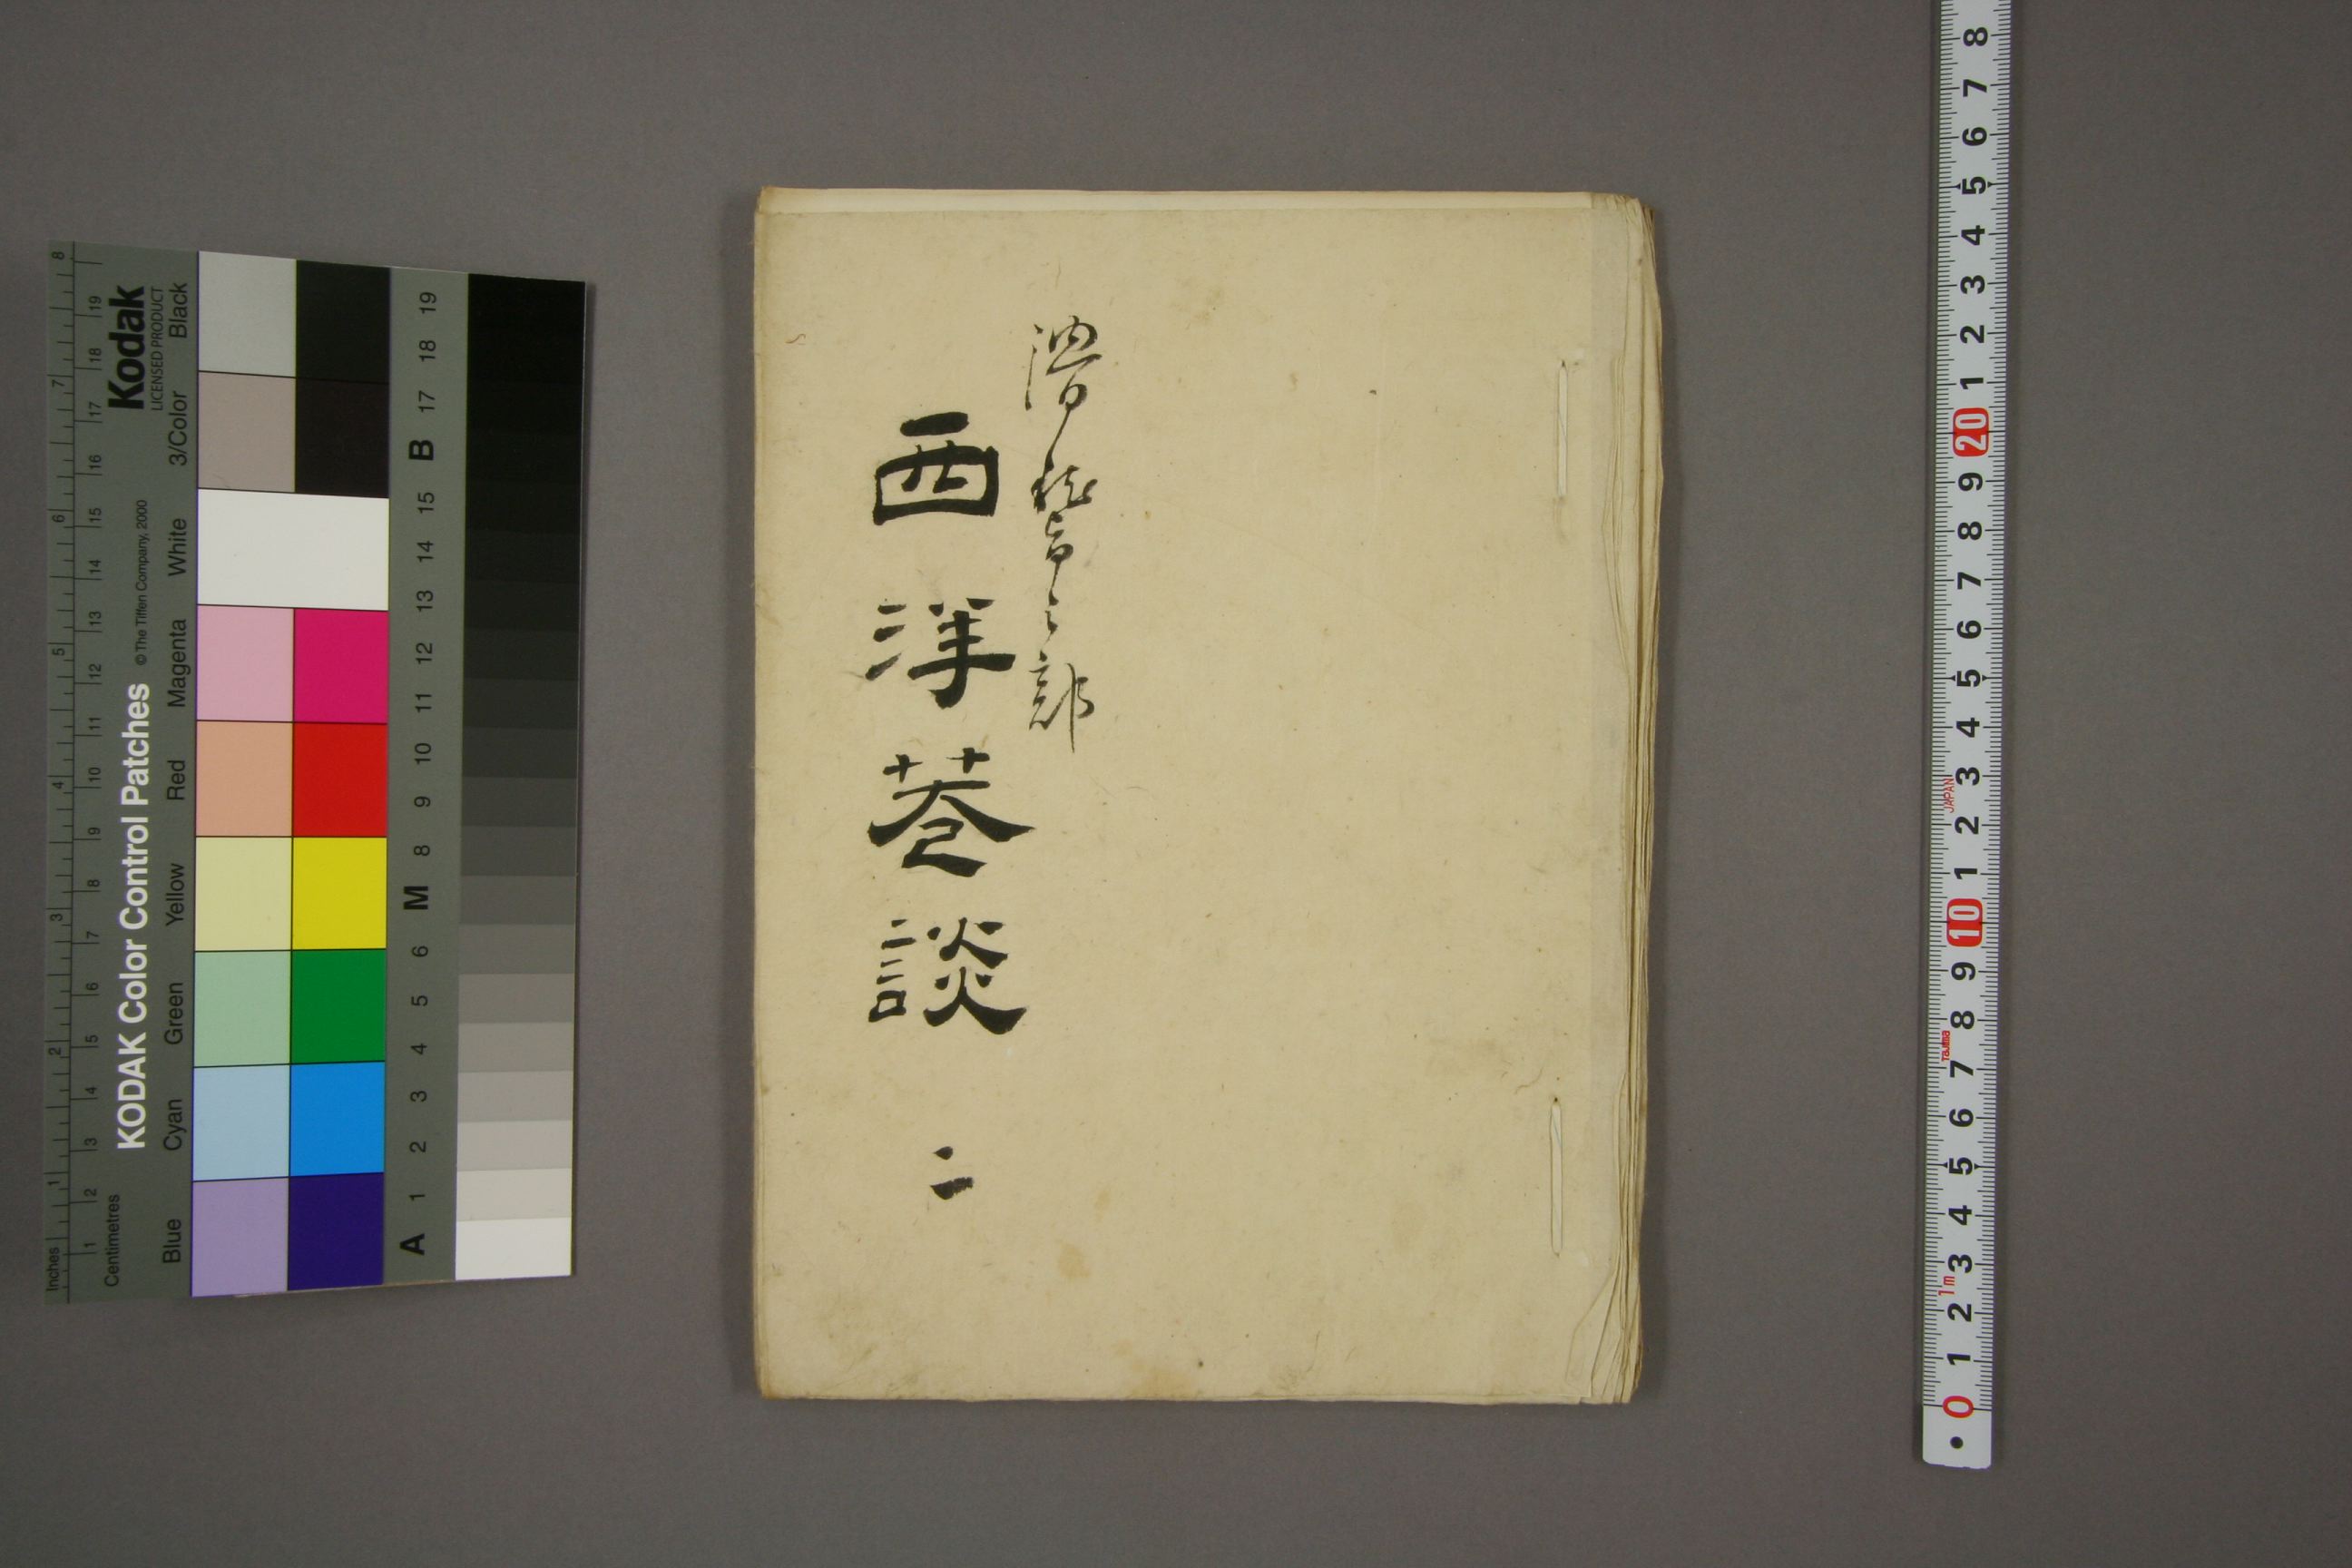 西洋巷談 二
KODAK Color Control Patches
© The Tiffen Company, 2000
Kodak
LICENSED PRODUCT
Inches 1 2 3 4 5 6 7 8
Centimetres 1 2 3 4 5 6 7 8 9 10 11 12 13 14 15 16 17 18 19
Blue Cyan Green Yellow Red Magenta White 3/Color Black
A 1 2 3 4 5 6 M 8 9 10 11 12 13 14 15 B 17 18 19
0 1 2 3 4 5 6 7 8 9 10 1 2 3 4 5 6 7 8 9 20 1 2 3 4 5 6 7 8
1m
Tajima
JAPAN